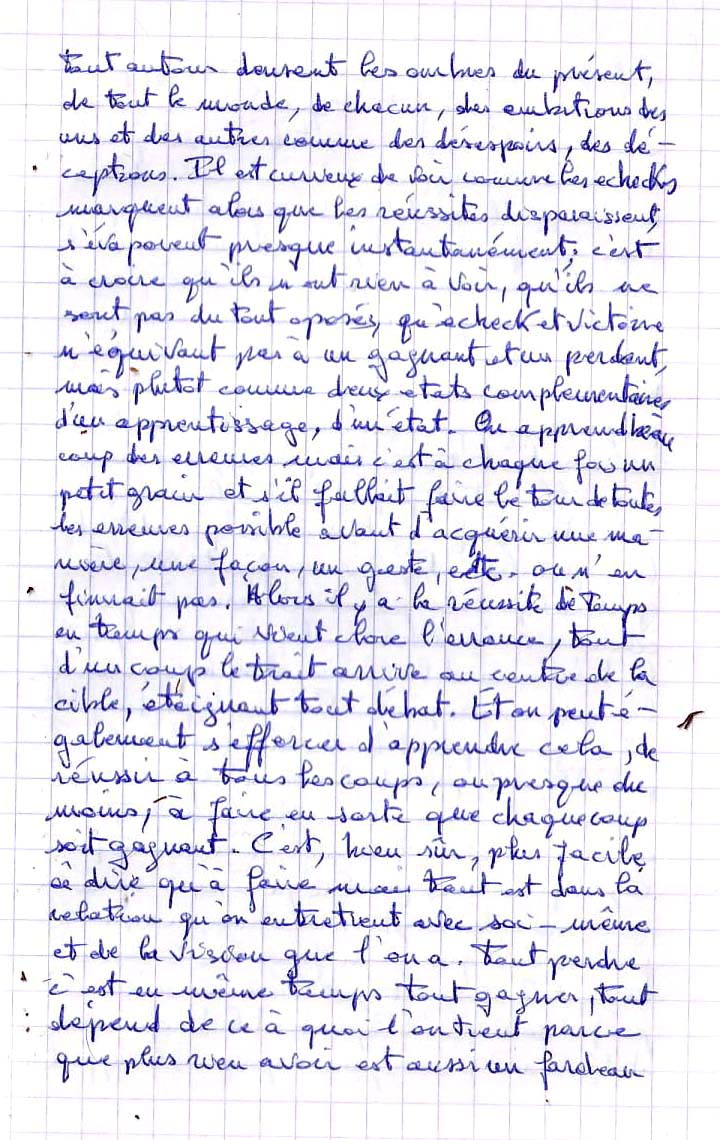 tout autour dansent les ombres du présent,
de tout le monde, de chacun, des ambitions des
uns et des autres comme des désespoirs, des dé-
ceptions. Il est curieux de voir comme les echecks
marquent alors que les réussites disparaissent,
s'évaporent presque instantanément; c'est
à croire qu'ils n'ont rien à voir, qu'ils ne
sont pas du tout oposés, qu'acheck et victoire
n'équivaut pas à un gagnant et un perdant,
mais plutot comme deux etats complementaires
d'un apprentissage, d'un état. On apprend beau
coup des erreures mais c'est à chaque fois un
petit grain et s'il fallait faire le tour de toutes
les erreures possible avant d'acquérir une ma-
nière, une façon, un geste, ectc. on n'en
finirait pas. Alors il y a la réussite de temps
en temps qui vient clore l'errance, tout
d'un coup le trait arrive au centre de la
cible, éteignant tout débat. Et on peut é-
galement s'efforcer d'apprendre cela, de
réussir à tous les coups, ou presque du
moins, à faire en sorte que chaque coup
soit gagnant. C'est, bien sûr, plus facile
à dire qu'à faire mais tout est dans la
relation qu'on entretient avec soi-même
et de la vision que l'on a. Tout perdre
c'est en même temps tout gagner, tout
dépend de ce à quoi l'on tient parce
que plus rien avoir est aussi un fardeau